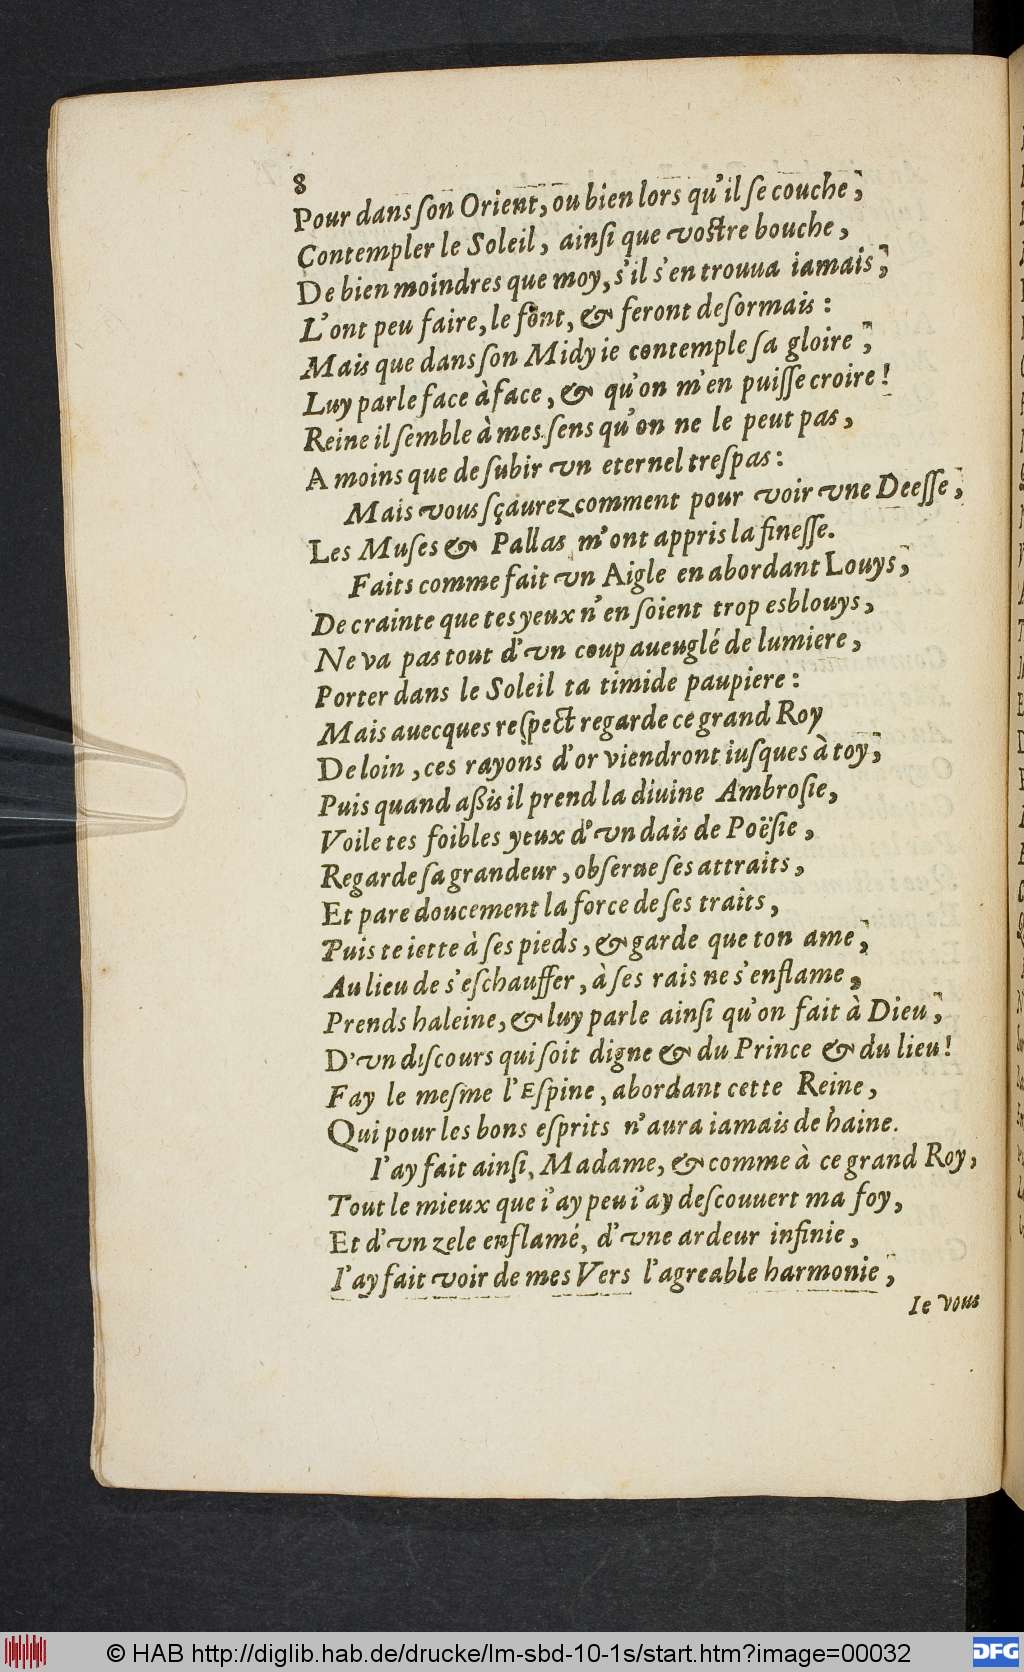 8
Pour dans ſon Orient, ou bien lors qu'il ſe couche,
Contempler le Soleil, ainſi que voſtre bouche,
De bien moindres que moy, s'il s'en trouua iamais,
L'ont peu faire, le font, & feront deſormais:
Mais que dans ſon Midy ie contemple ſa gloire,
Luy parle face à face, & qu'on m'en puiſſe croire!
Reine il ſemble à mes ſens qu'on ne le peut pas,
A moins que de ſubir vn eternel treſpas:
Mais vous ſçaurez comment pour voir vne Deeſſe,
Les Muſes & Pallas m'ont appris la fineſſe.
Faits comme fait vn Aigle en abordant Louys,
De crainte que tes yeux n'en ſoient trop esblouys,
Ne va pas tout d'vn coup aueuglé de lumiere,
Porter dans le Soleil ta timide paupiere:
Mais auecques reſpect regarde ce grand Roy
De loin, ces rayons d'or viendront iuſques à toy,
Puis quand aßis il prend la diuine Ambroſie,
Voile tes foibles yeux d'vn dais de Poëſie,
Regarde ſa grandeur, obſerue ſes attraits,
Et pare doucement la force de ſes traits,
Puis te iette à ſes pieds, & garde que ton ame,
Au lieu de s'eſchauffer, à ſes rais ne s'enflame,
Prends haleine, & luy parle ainſi qu'on fait à Dieu,
D'vn diſcours qui ſoit digne & du Prince & du lieu!
Fay le meſme l'Eſpine, abordant cette Reine,
Qui pour les bons eſprits n'aura iamais de haine.
I'ay fait ainſi, Madame, & comme à ce grand Roy,
Tout le mieux que i'ay peu i'ay deſcouuert ma foy,
Et d'vn zele enflamé, d'vne ardeur infinie,
I'ay fait voir de mes Vers l'agreable harmonie,
Ie vous
© HAB http://diglib.hab.de/drucke/lm-sbd-10-1s/start.htm?image=00032
DFG